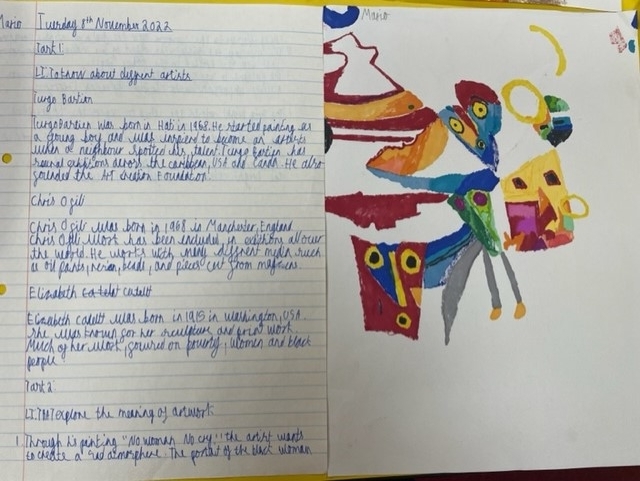 Mario
Tuesday 8th November 2022
Part 1:
LI: To know about diffrent artists
Turgo Bastien
Turgo Bastien was born in Hati in 1968. He started painting as
a young boy and was inspired to become an artists
when a neighbour spotted his talent. Turgo Bastien has
across the caribbean, USA and He also
founded the Art Creation Foundation.
Chris Ofili
Chris Ofili was born in 1968 in Manchester, England
Chris Ofili work has been included in all over
the world. He works with many diffrent media such
as oil paints, beads, and pieces cut from
Elizabeth catlett
Elizabeth catlett was born in 1915 in washington, USA.
She was known for her sculpture and print work.
Much of her work, focused on poverty, women and black
people
Part 2:
LI: To explore the meaning of artwork
1. Through his painting "No woman No cry", the artist wants
to create a sad atmosphere. The portrait of the black woman
Mario